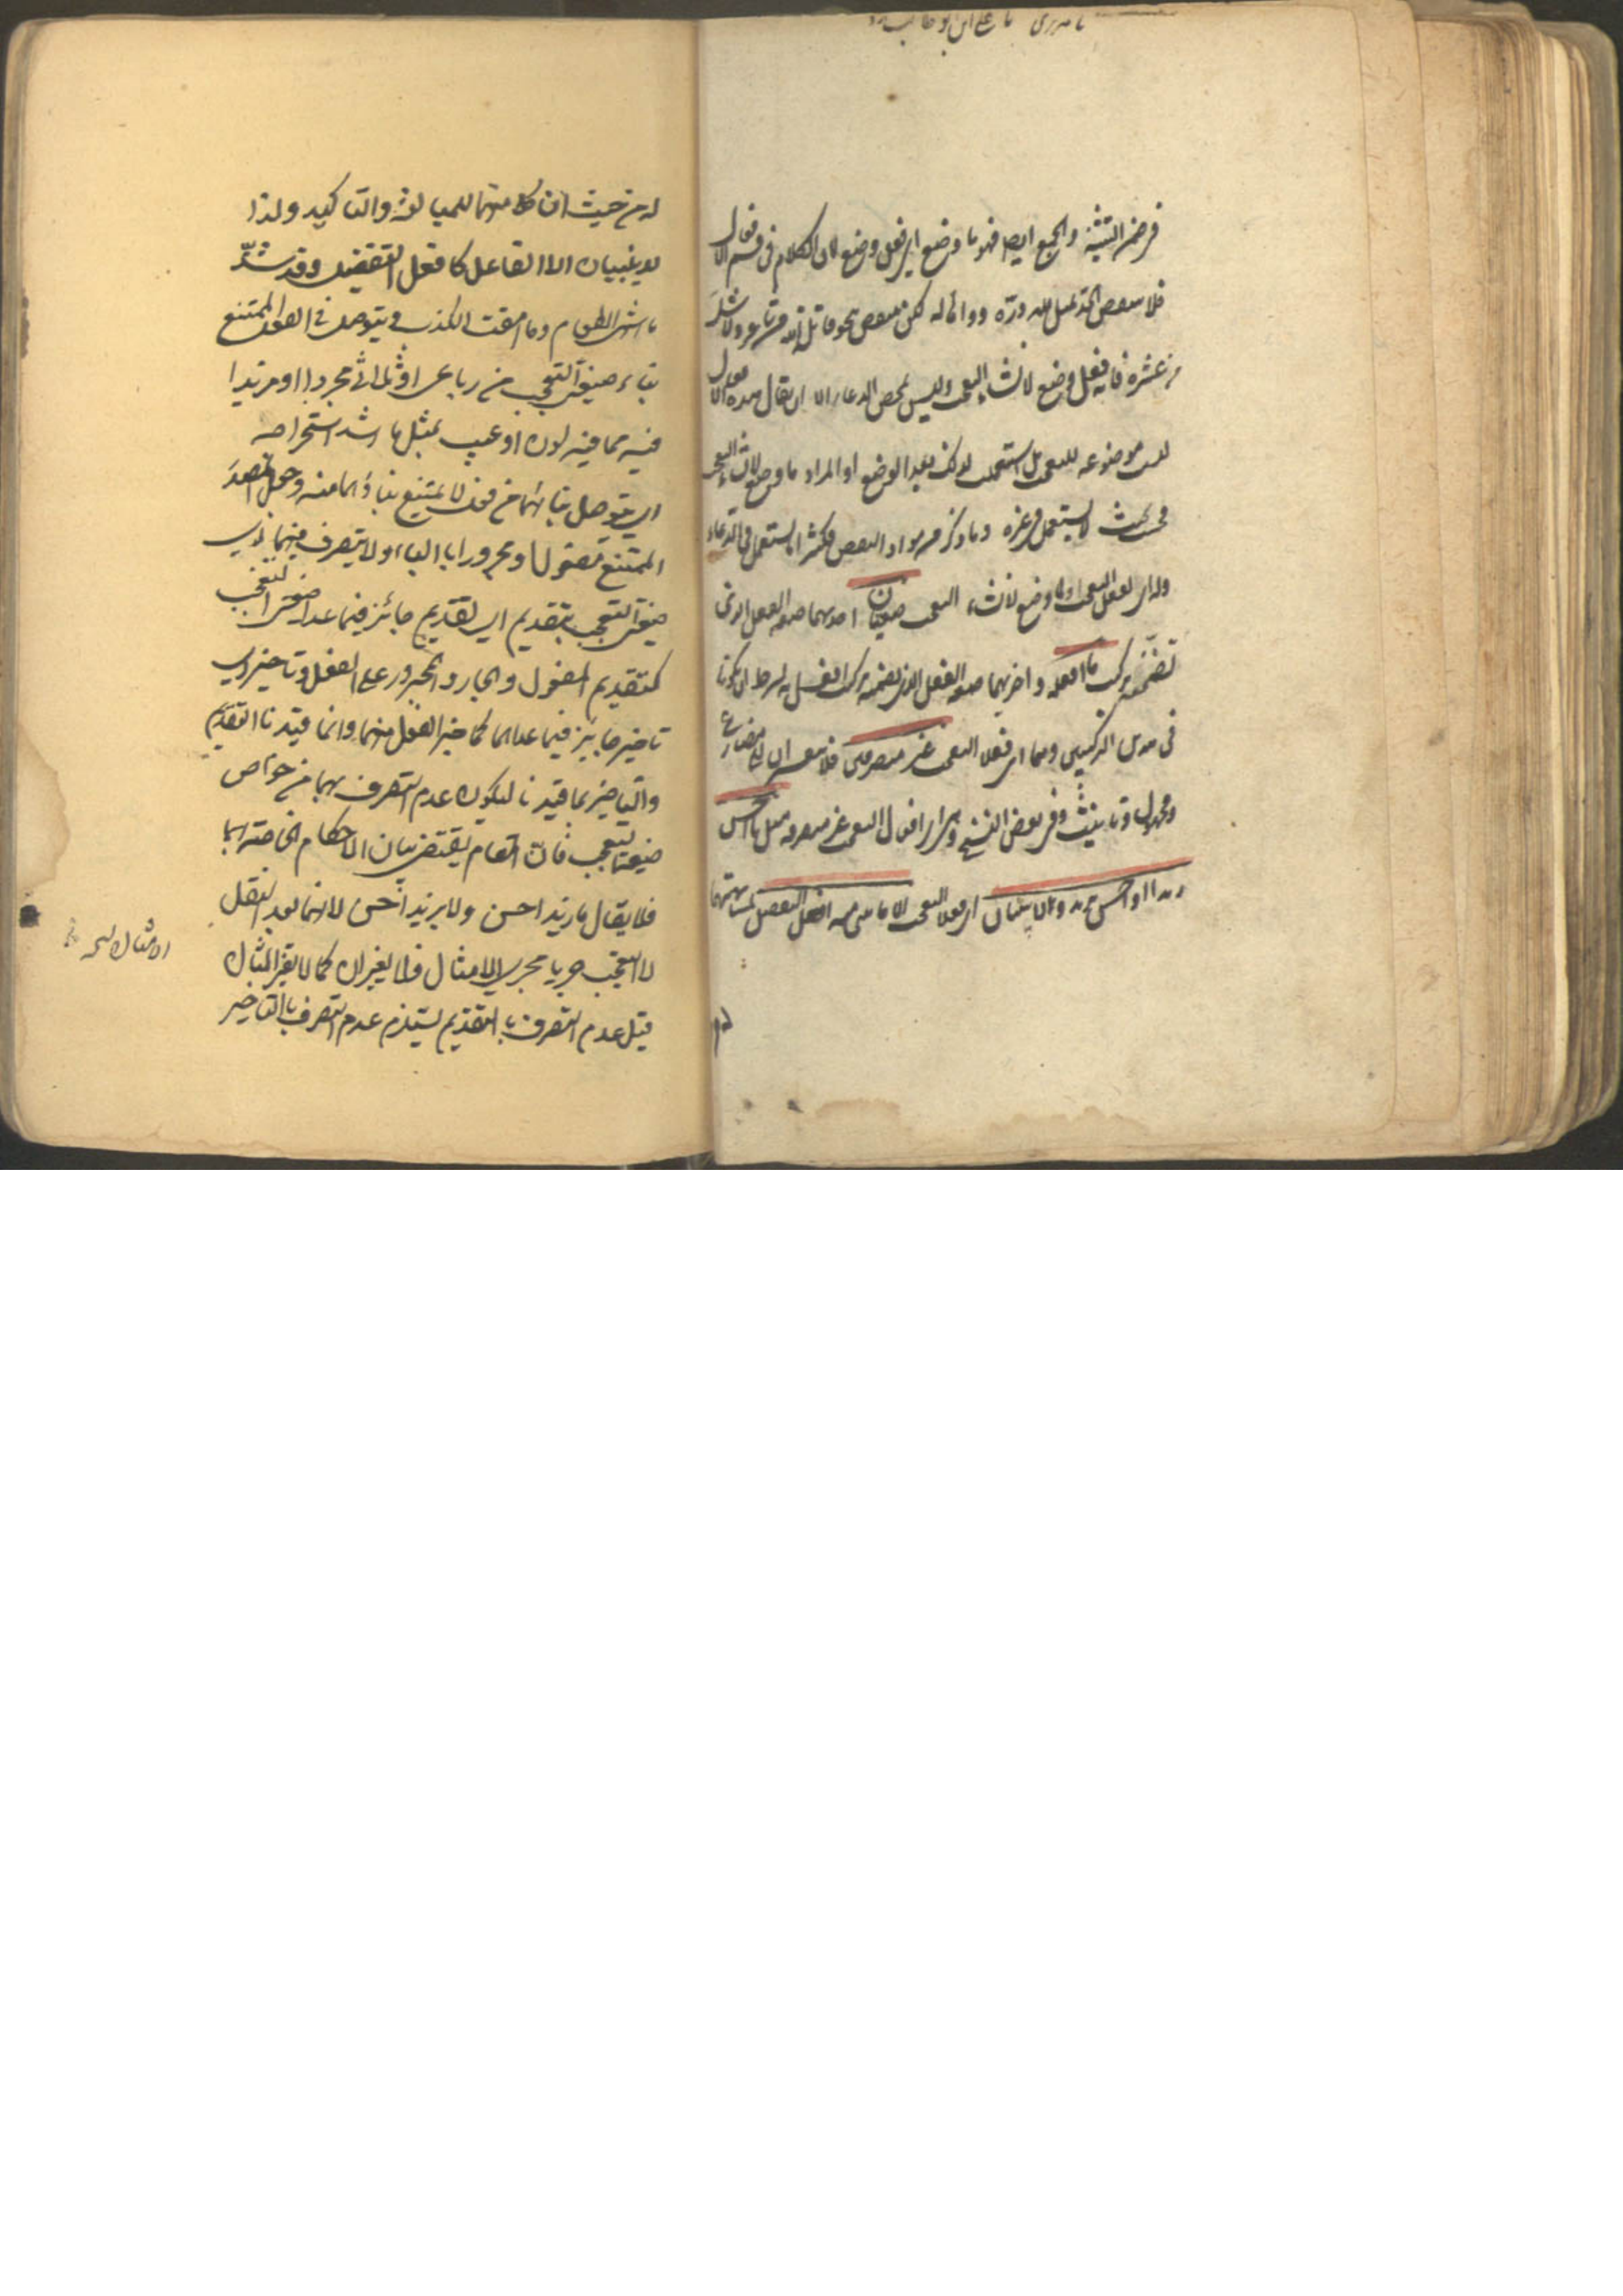 فى ضمن التثنية والجمع ايضا فهو ما وضع اى فعل وضع لان الكلام فى قسم الافعال
فلا ينتقض الحد بمثل لله دره وواها له لكن ينتقض بنحو قاتله الله من شاعر ولا شل
من عشره فانه فعل وضع لانشاء التعجب وليس بمحض الدعاء الا ان يقال هذه الافعال
ليست موضوعة للتعجب بل استعملت لذلك بعد الوضع او المراد ما وضع لانشاء التعجب
بحيث لا يستعمل فى غيره وما ذكر من مواد النقض فكثيرا ما يستعمل فى الدعاء
وله اى لفعل التعجب او لما وضع لانشاء التعجب صيغتان احديهما صيغة الفعل الذى
تضمنه تركيب ما افعله واخريهما صيغة الفعل الذى تضمنه تركيب افعل به بشرط ان يكونا
فى هذين التركيبين وهما اى فعلا التعجب غير متصرفين فلا يتغيران الى مضارع
ومجهول وتانيث وفى بعض النسخ وهى اى افعال التعجب غير متصرفة مثل ما احسن
زيدا واحسن بزيد ولا يبنيان اى فعلا التعجب الا مما يبنى منه افعل التفضيل لمشابهتهما
له من حيث ان كلا منهما للمبالغة والتاكيد ولذا
لا يبنيان الا للفاعل كافعل التفضيل وقد شذ
ما اشهى الطعام وما امقت الكذب ويتوصل فى الفعل الممتنع
بناء صيغتى التعجب من رباعى او ثلاثى مجرد او مزيد
فيه مما فيه لون او عيب بمثل ما اشد استخراجه
اى يتوصل ببنائهما من فعل لا يمتنع بناؤهما منه وجعل المصدر
الممتنع مفعولا او مجرورا بالباء ولا يتصرف فيهما اى فى
صيغتى التعجب بتقديم اى تقديم جائز فيما عدا صيغتى التعجب
كتقديم المفعول والجار والمجرور على الفعل وتاخير اى
تاخير جائز فيما عداهما كتاخير الفعل منهما وانما قيدنا التقديم
والتاخير بما قيدنا ليكون عدم التصرف بهما من خواص
صيغتى التعجب فان المقام يقتضى بيان الاحكام الخاصة بها
فلا يقال ما زيدا احسن ولا بزيد احسن لانهما بعد النقل
الى التعجب جريا مجرى الامثال فلا يغيران كما لا يغير الامثال
قيل عدم التصرف بالتقديم يستلزم عدم التصرف بالتاخير
له